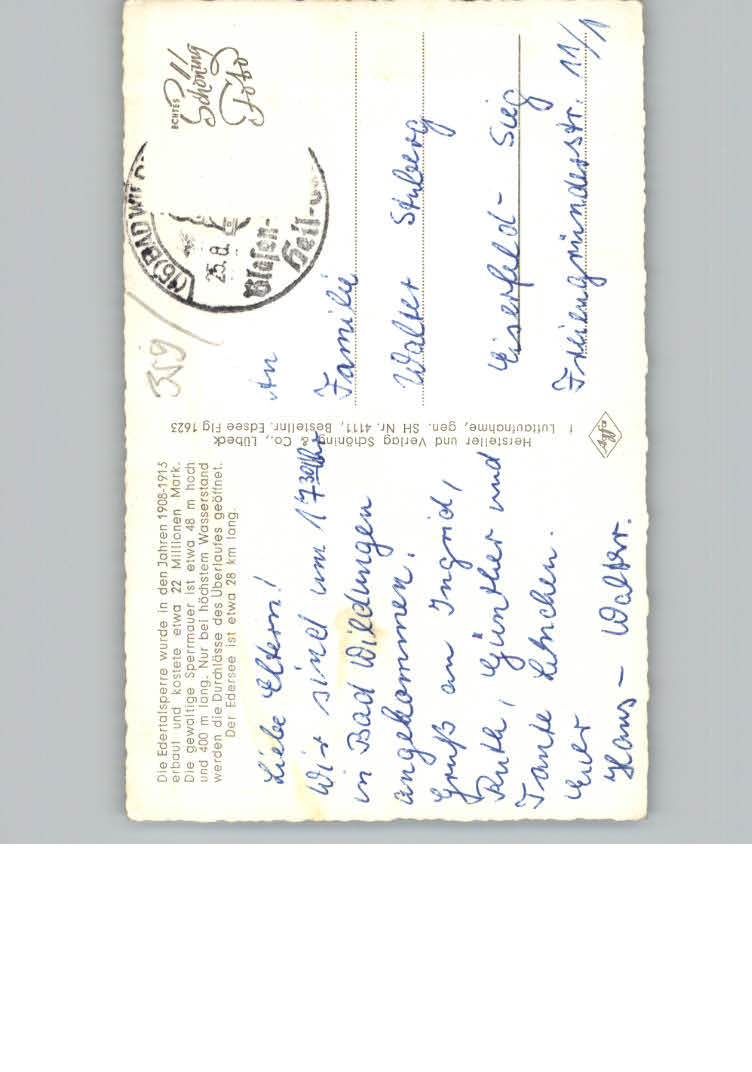 Die Edertalsperre wurde in den Jahren 1908-1913
erbaut und kostete etwa 22 Millionen Mark.
Die gewaltige Sperrmauer ist etwa 48 m hoch
und 400 m lang. Nur bei höchstem Wasserstand
werden die Durchlässe des Überlaufes geöffnet.
Der Edersee ist etwa 28 km lang.
Liebe Eltern!
Wir sind um 17 30 Uhr
in Bad Wildungen
angekommen.
Gruß an Ingrid,
Ruth, Günther und
Tante Lenchen.
Euer
Hans - Walter.
Hersteller und Verlag Schöning & Co., Lübeck
f Luftaufnahme, gen. SH Nr. 4111, Bestellnr. Edsee Flg 1623
Agfa
ECHTES
Schöning
Foto
359/
(16) BAD WIL
25.8.
Blasen-
Heil-
An
Familie
Walter Stuberg
Eiserfeld - Sieg
Freiengründerstr. 11/1